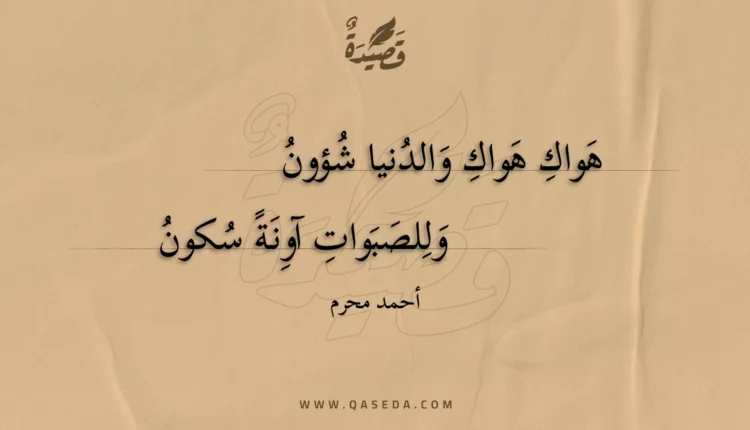 قَصِيْدَةٌ
هَواكِ هَواكِ وَالدُنيا شُؤونُ
وَلِلصَبَواتِ آوِنَةً سُكونُ
أحمد محرم
WWW.QASEDA.COM